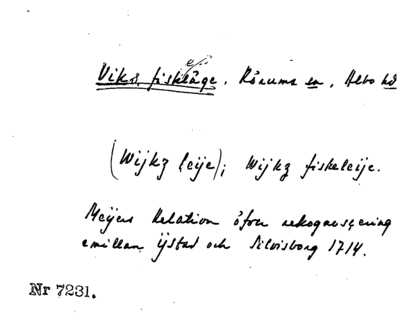 Viks fiskläge. Rörums sn, Albo hd
(Wijkz leije); Wijkz fiskeleije.
Meijers Relation öfver rekognoscering
emillan Ijstad och Silvisborg 1714.
Nr 7231.